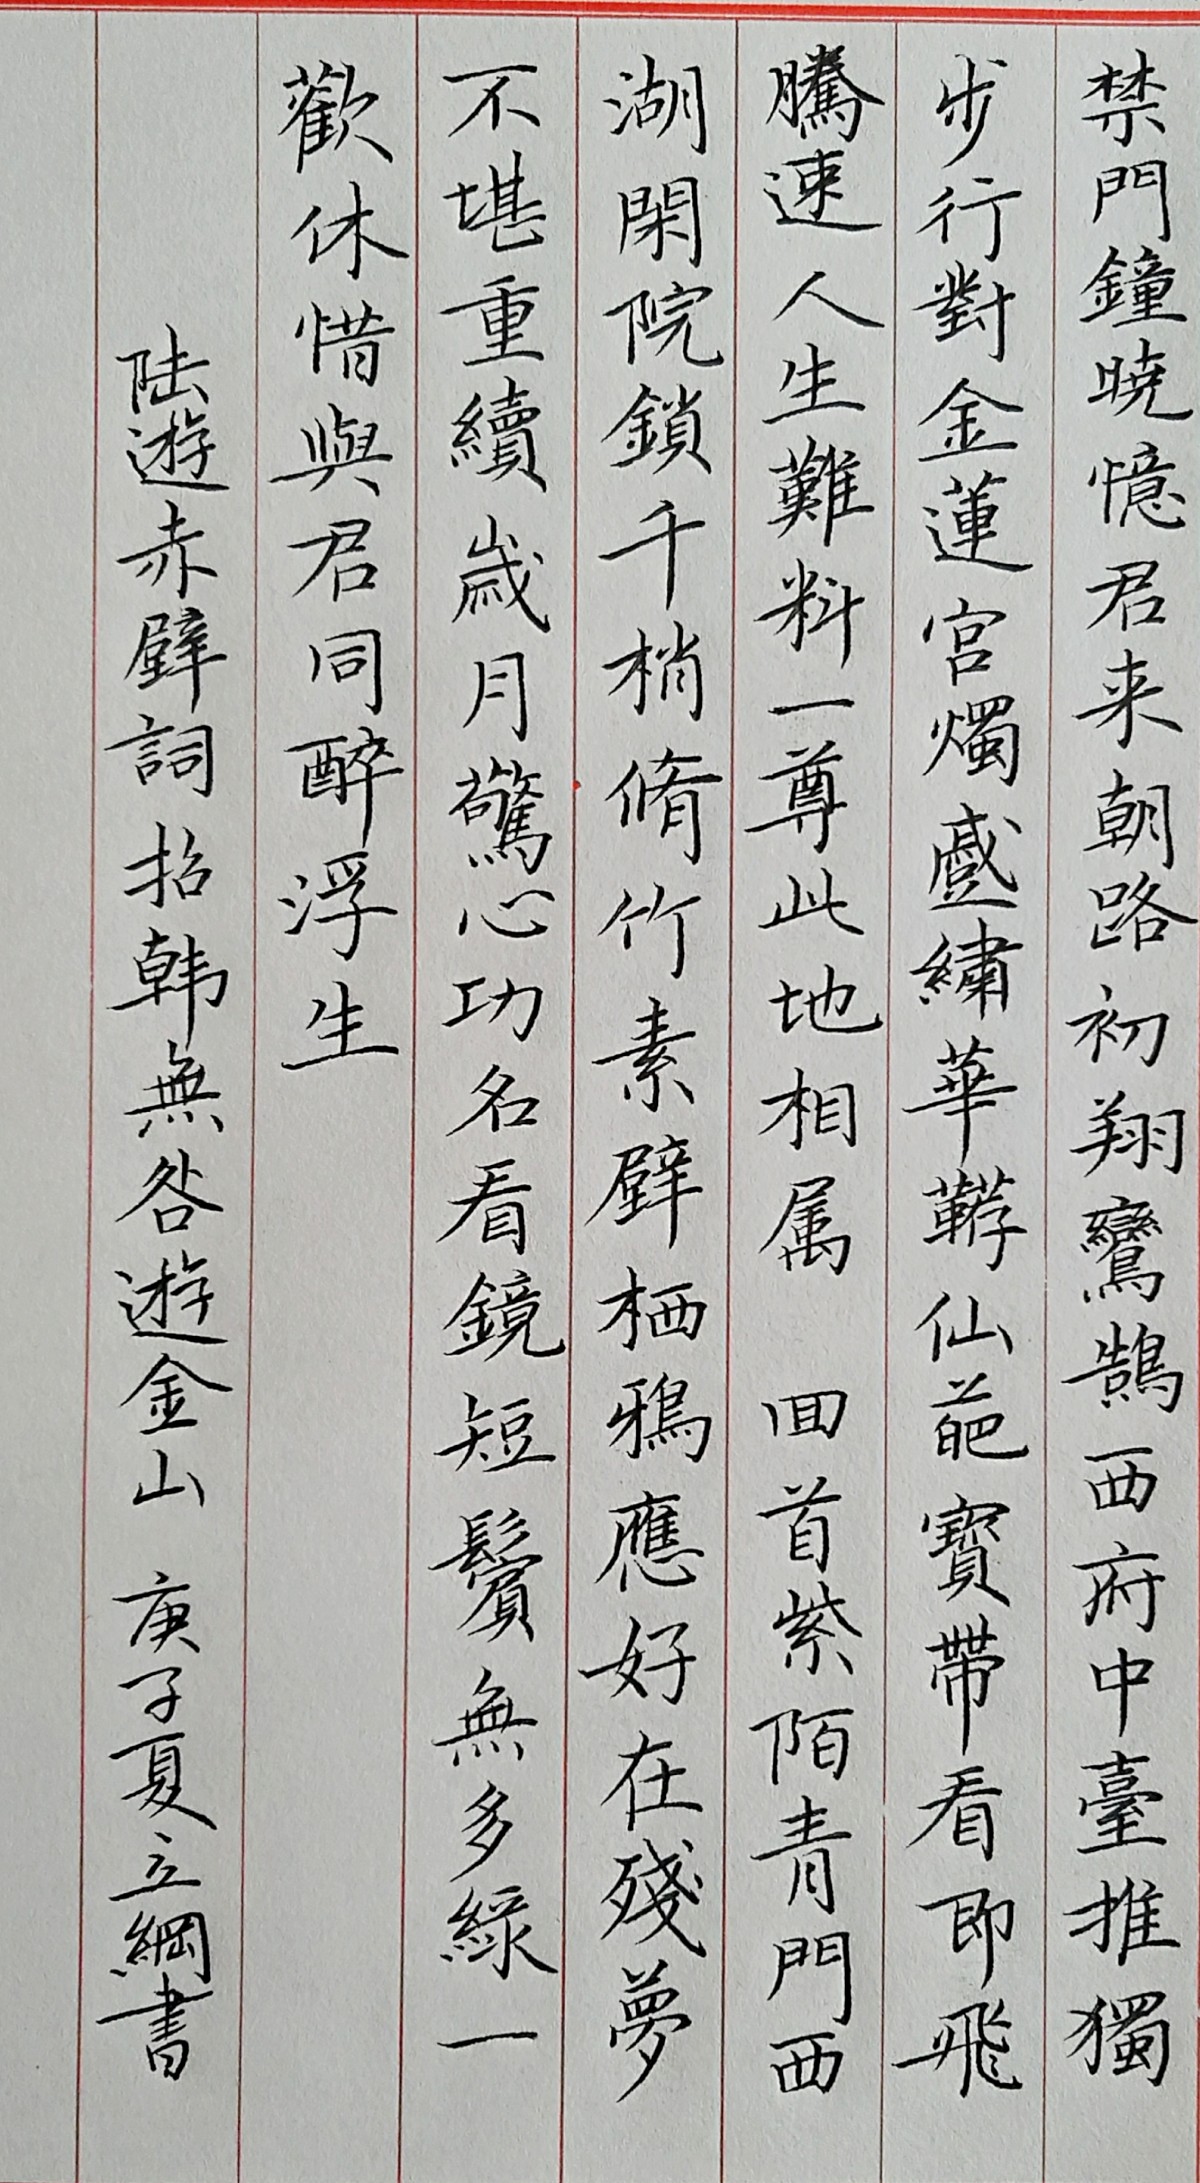 禁門鐘曉憶君来朝路初翔鸞鵠西府中臺推獨
步行對金蓮宮燭蹙繡華鞯仙葩寶帶看即飛
騰速人生難料一尊此地相属 回首紫陌青門西
湖閑院鎖千梢脩竹素壁栖鴉應好在殘夢
不堪重續歲月驚心功名看鏡短鬢無多綠一
歡休惜與君同醉浮生
陆遊赤壁詞招韩無咎遊金山 庚子夏立綱書